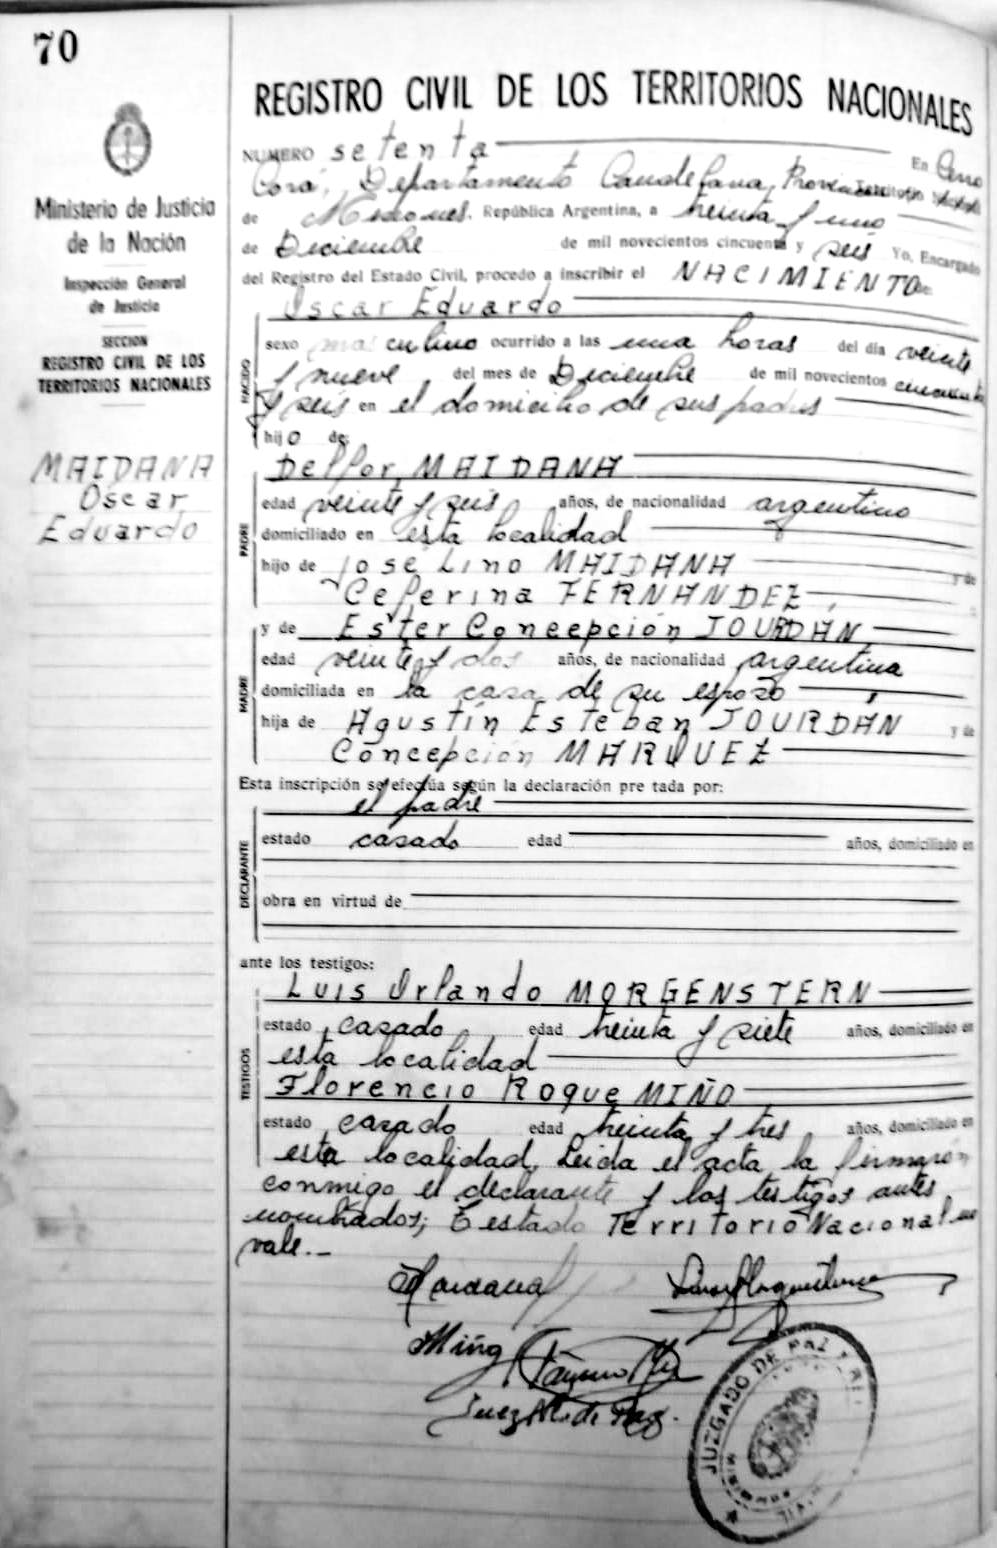 70
REGISTRO CIVIL DE LOS TERRITORIOS NACIONALES
NUMERO setenta En Cerro
Corá, Departamento Candelaria, Provincia Territorio
de Misiones. República Argentina, a treinta y uno
de Diciembre de mil novecientos cincuenta y seis Yo, Encargado
del Registro del Estado Civil, procedo a inscribir el NACIMIENTO de
Oscar Eduardo
sexo masculino ocurrido a las una horas del día veinte
y nueve del mes de Diciembre de mil novecientos cincuenta
y seis en el domicilio de sus padres
hijo de:
NACIDO
Ministerio de Justicia
de la Nación
Inspección General
de Justicia
SECCION
REGISTRO CIVIL DE LOS
TERRITORIOS NACIONALES
MAIDANA
Oscar
Eduardo
Delfor MAIDANA
edad veinte y seis años, de nacionalidad argentino
domiciliado en esta localidad
hijo de José Lino MAIDANA y de
Ceferina FERNANDEZ,
PADRE
y de Ester Concepción JOURDÁN
edad veinte y dos años, de nacionalidad argentina
domiciliada en la casa de su esposo,
hija de Agustín Esteban JOURDÁN y de
Concepción MARQUEZ
MADRE
Esta inscripción se efectúa según la declaración pre tada por:
el padre
estado casado edad años, domiciliado en
obra en virtud de
DECLARANTE
ante los testigos:
Luis Orlando MORGENSTERN
estado casado edad treinta y siete años, domiciliado en
esta localidad
Florencio Roque MIÑO
estado casado edad treinta y tres años, domiciliado en
esta localidad, Leída el acta la firmaron
conmigo el declarante y los testigos antes
nombrados; Testado Territorio Nacional no
vale.-
TESTIGOS
Maidana
Miño
Juez de Paz.
JUZGADO DE PAZ Y
CIVIL